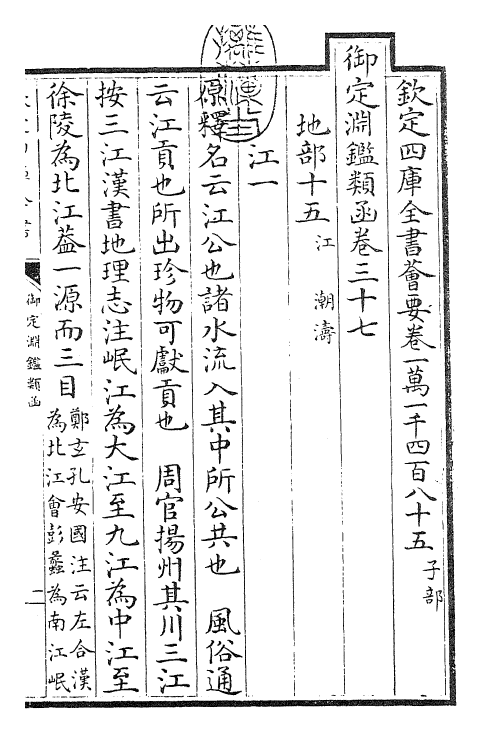 欽定四庫全書薈要卷一萬一千四百八十五 子部
御定淵鑑類函卷三十七
地部十五 江 潮濤
江一
原釋名云江公也諸水流入其中所公共也 風俗通
云江貢也所出珍物可獻貢也 周官揚州其川三江
按三江漢書地理志注岷江為大江至九江為中江至
徐陵為北江葢一源而三目 鄭玄孔安國注云左合漢
為北江會彭蠡為南江岷
御定淵鑑類函